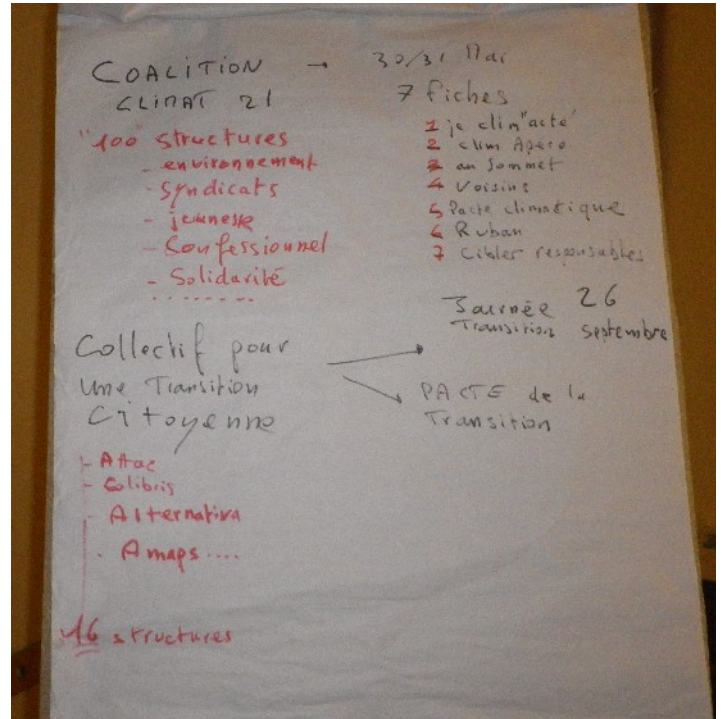 COALITION → 30/31 Mai
CLIMAT 21
7 fiches
"100" structures
- environnement
- Syndicats
- jeunesse
- Confessionnel
- Solidarité
........
1 je clim"acte"
2 clim Apéro
3 au Sommet
4 Voisins
5 Pacte climatique
6 Ruban
7 Cibler responsables
Journée 26
Transition Septembre
Collectif pour
une Transition
Citoyenne
PACTE de la
Transition
- Attac
- Colibris
- Alternativa
- Amaps ....
16 structures